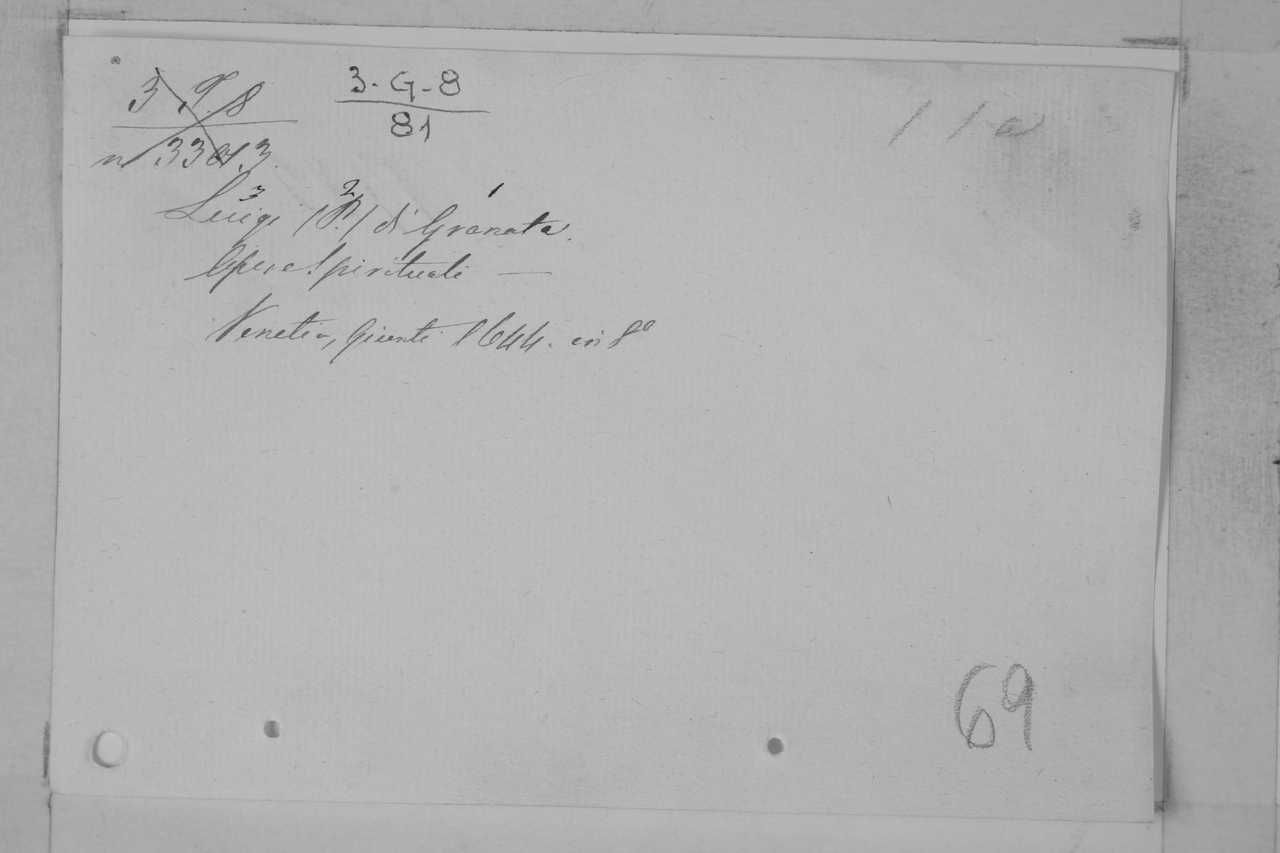 3. G-8
81
1 1 a
3 2 1
Luigi (P.) di Granata.
Opere Spirituali —
Venetia, Giunti 1644. in 8º
69